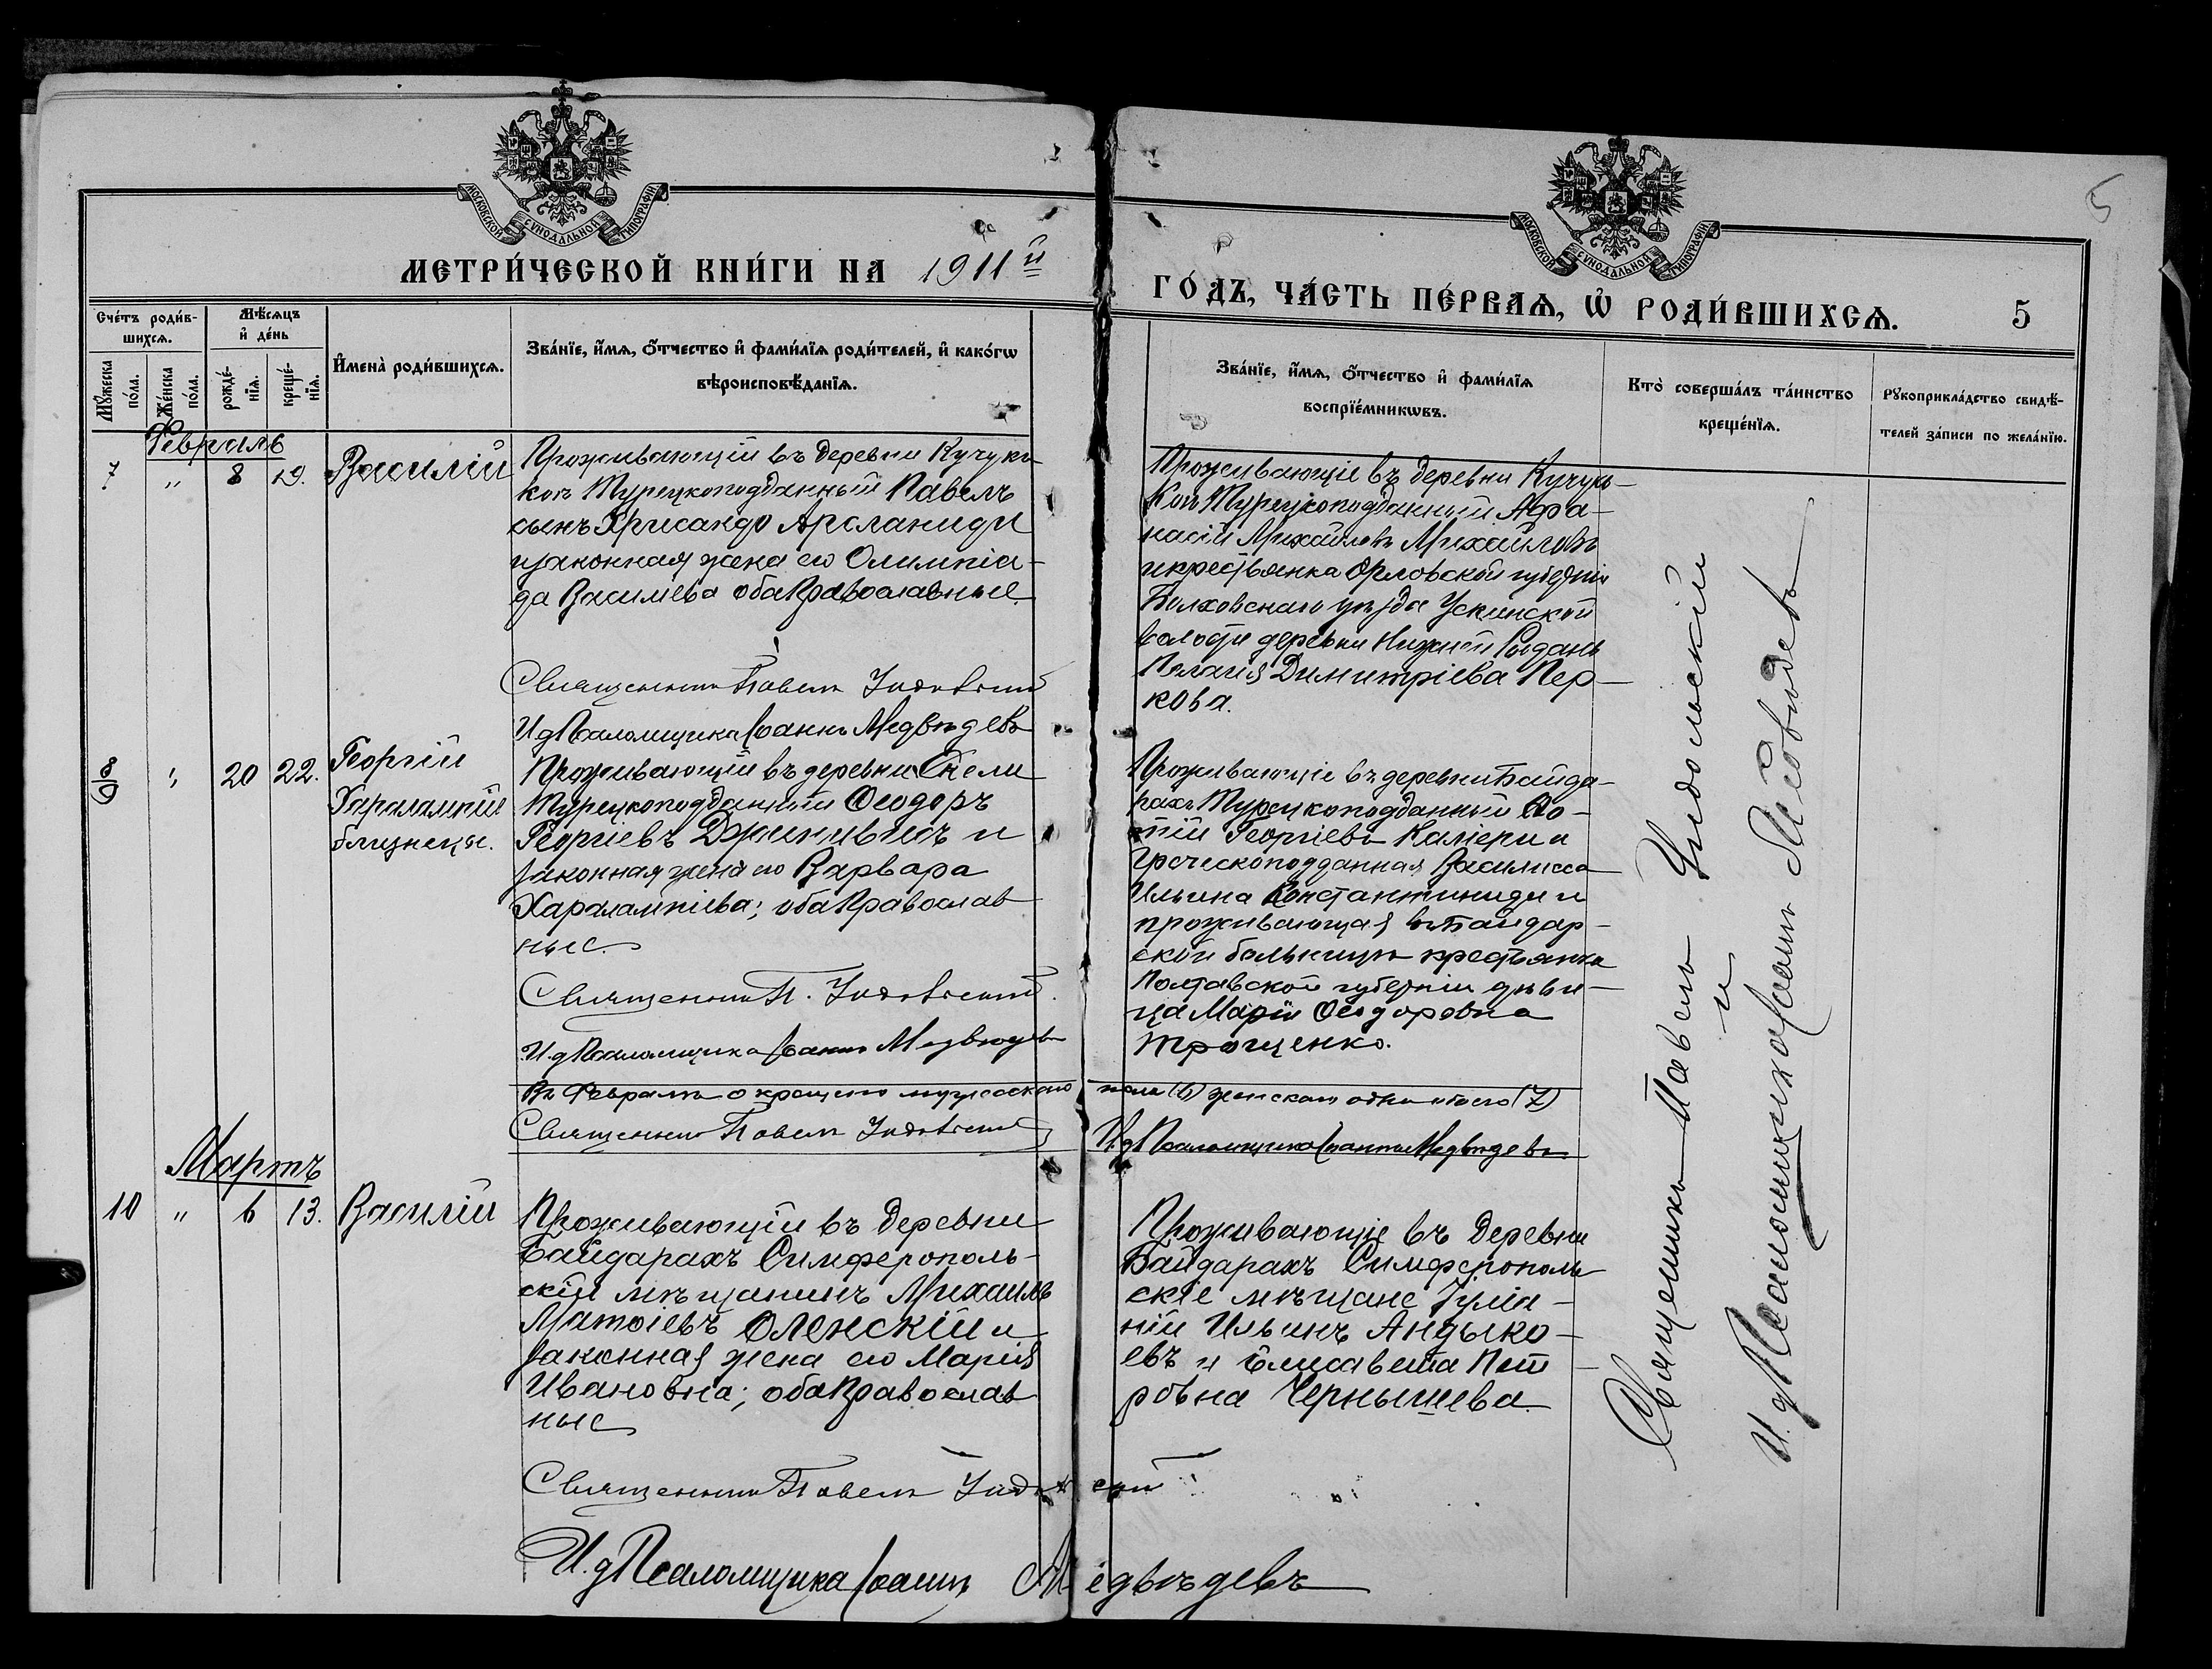 МОСКОВСКОЙ СѴНОДАЛЬНОЙ ТИПОГРАФІИ
МОСКОВСКОЙ СѴНОДАЛЬНОЙ ТИПОГРАФІИ
5
МЕТРИ́ЧЕСКОЙ КНИ́ГИ НА 1911й
ГО́ДЪ, ЧА́СТЬ ПЕ́РВАѦ, Ѡ҆ РОДИ́ВШИХСѦ.
5
Сче́тъ роди́в-
шихсѧ.
Мꙋ́жеска
по́ла.
Же́нска
по́ла.
Мѣ́сѧцъ
и҆ де́нь
рожде́-
нїѧ.
креще́-
нїѧ.
И҆мена̀ роди́вшихсѧ.
Зва́нїе, и҆́мѧ, ѻ҆́тчество и҆ фами́лїѧ роди́телей, и҆ како́гѡ
вѣроисповѣ́данїѧ.
Зва́нїе, и҆́мѧ, ѻ҆́тчество и҆ фами́лїѧ
воспрїе́мникѡвъ.
Кто̀ соверша́лъ та́инство
креще́нїѧ.
Рꙋкоприкла́дство свидѣ́-
телей за́писи по жела́нїю.
Февраль
7 " 8 19. Василій
Проживающій въ деревни Кучукъ
Кой Турецкоподданный Павелъ
сынъ Хрисандо Арсланиди
и законная жена его Олимпіа-
да Васильева оба Православные.
Священникъ Павелъ
И.д. Псаломщика Іоаннъ Медвѣдевъ
Проживающіе въ деревни Кучукъ-
Кой Турецкоподданный Афа-
насій Михайловъ Михайловъ
и крестьянка Орловской губерніи
Болховскаго уѣзда
волости деревни Нижней
Пелагія Димитріева Пер-
кова.
8/9 " 20 22.
Георгій
Харалампій
близнецы.
Проживающій въ деревни Скели
Турецкоподданный Ѳеодоръ
Георгіевъ и
законная жена его Варвара
Харалампіева; оба Православ
ные.
Священникъ П.
И.д. Псаломщика Іоаннъ Медвѣдевъ
Проживающіе въ деревни Байда-
рахъ Турецкоподданный
Георгіевъ Калієри и
Греческоподданная Василисса
Ильина Константиниди и
проживающая въ Байдар-
ской больницѣ крестьянка
Полтавской губерніи дѣви-
ца Марія Ѳеодоровна
Трощенко.
Въ Февралѣ окрещено мужескаго пола (6) женскаго одна итого (7)
Священникъ Павелъ
И.д. Псаломщика Іоаннъ Медвѣдевъ
Мартъ
10 " 6 13. Василій
Проживающій въ деревни
Байдарахъ Симферополь-
скій мѣщанинъ Михаилъ
Матѳіевъ Оленскій и
законная жена его Марія
Ивановна; оба Православ
ные
Священникъ Павелъ
И.д. Псаломщика Іоаннъ Медвѣдевъ
Проживающіе въ деревни
Байдарахъ Симферополь
скіе мѣщане Іуліа-
ній Ильинъ Андыко-
евъ и Елисавета Пет-
ровна Чернышева.
Священникъ Павелъ
и
И.д. Псаломщика Іоаннъ Медвѣдевъ